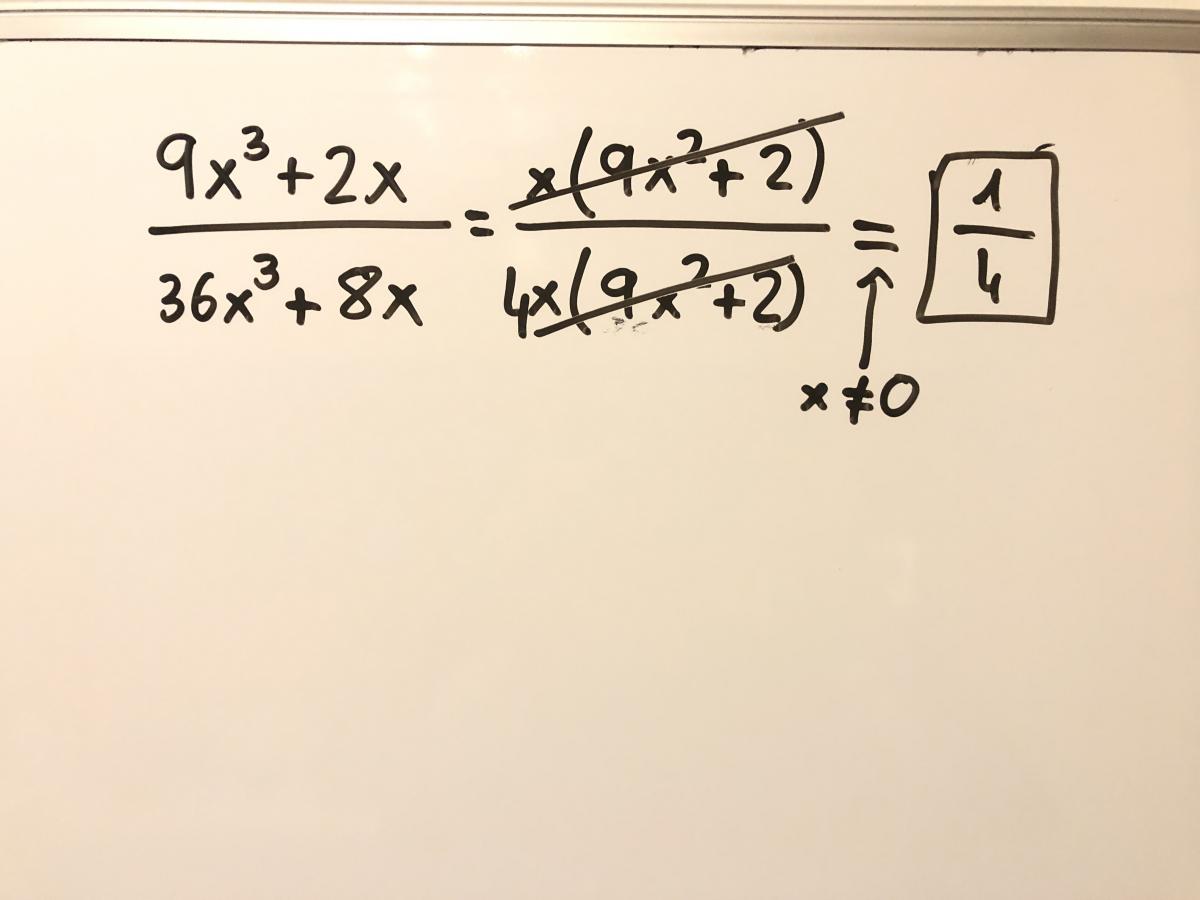 9x³+2x / 36x³+8x = x(9x²+2) / 4x(9x²+2) = 1/4
x≠0